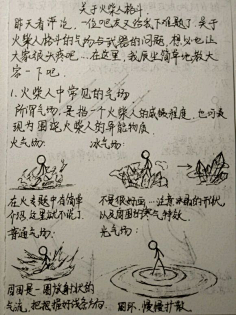 关于火柴人格斗.
昨天看评论,一位吧友又给我下难题了.关于
火柴人格斗的气场与武器的问题,想必也让
大家很头疼吧……在这里,我辰业简单地教大
家一下吧.
1.火柴人中常见的气场
所谓气场,是指一个火柴人的威慑程度,也可表
现为围绕火柴人的异能物质
火气场: 冰气场:
在火专题中有简单
介绍 这里就不说了.
不是很好画……注意冰晶的形状,
以及周围的寒气特效.
普通气场: 光气场:
周围是一圈放射状的
气流,把把握好线条方向.
圆环,慢慢扩散